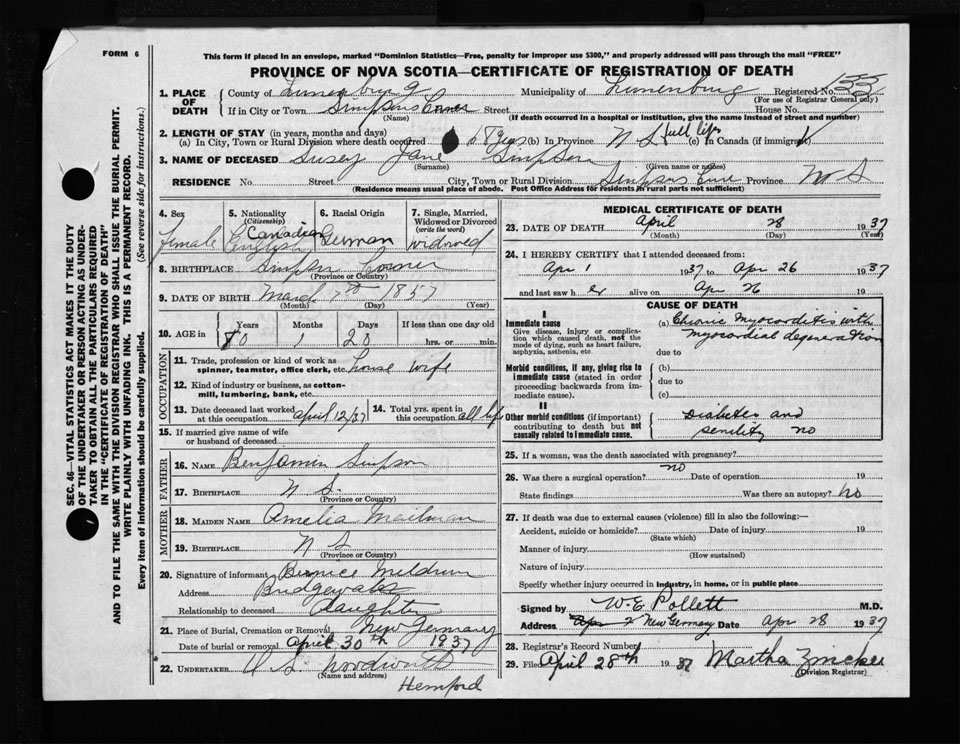 FORM 6
This form if placed in an envelope, marked "Dominion Statistics—Free, penalty for improper use $300," and properly addressed will pass through the mail "FREE"
PROVINCE OF NOVA SCOTIA—CERTIFICATE OF REGISTRATION OF DEATH
SEC. 46—VITAL STATISTICS ACT MAKES IT THE DUTY
OF THE UNDERTAKER OR PERSON ACTING AS UNDER-
TAKER TO OBTAIN ALL THE PARTICULARS REQUIRED
IN THE "CERTIFICATE OF REGISTRATION OF DEATH"
AND TO FILE THE SAME WITH THE DIVISION REGISTRAR WHO SHALL ISSUE THE BURIAL PERMIT.
WRITE PLAINLY WITH UNFADING INK. THIS IS A PERMANENT RECORD.
Every item of information should be carefully supplied. (See reverse side for instructions.)
1. PLACE OF DEATH County of Lunenburg Municipality of Lunenburg Registered No.
(For use of Registrar General only)
If in City or Town Simpsons Corner Street House No.
(Name) (If death occurred in a hospital or institution, give the name instead of street and number)
2. LENGTH OF STAY (in years, months and days)
(a) In City, Town or Rural Division where death occurred 68 yrs (b) In Province N S full life (c) In Canada (if immigrant)
3. NAME OF DECEASED Susey Jane Simpson
(Surname) (Given name or names)
RESIDENCE No. Street City, Town or Rural Division Simpsons Province N S
(Residence means usual place of abode. Post Office Address for residents in rural parts not sufficient)
4. Sex 5. Nationality (Citizenship) 6. Racial Origin 7. Single, Married, Widowed or Divorced (write the word)
female Canadian English German widowed
8. BIRTHPLACE Simpson Corner
(Province or Country)
9. DATE OF BIRTH March 7th 1857
(Month) (Day) (Year)
10. AGE in Years Months Days If less than one day old
80 1 20 hrs. or min.
OCCUPATION
11. Trade, profession or kind of work as spinner, teamster, office clerk, etc. house wife
12. Kind of industry or business, as cotton-mill, lumbering, bank, etc.
13. Date deceased last worked at this occupation april 12/37 14. Total yrs. spent in this occupation all life
15. If married give name of wife or husband of deceased
FATHER
16. NAME Benjamin Simpson
17. BIRTHPLACE N S.
(Province or Country)
MOTHER
18. MAIDEN NAME Amelia Mailman
19. BIRTHPLACE N S
(Province or Country)
20. Signature of informant Bernice Meldrum
Address Bridgewater
Relationship to deceased daughter
21. Place of Burial, Cremation or Removal New Germany
Date of burial or removal april 30th 1937
22. UNDERTAKER
(Name and address)
Hemford
MEDICAL CERTIFICATE OF DEATH
23. DATE OF DEATH April 28 1937
(Month) (Day) (Year)
24. I HEREBY CERTIFY that I attended deceased from:
Apr 1 1937 to Apr 26 1937
and last saw her alive on Apr 26 19
CAUSE OF DEATH
I
Immediate cause
Give disease, injury or complication which caused death, not the mode of dying, such as heart failure, asphyxia, asthenia, etc
(a) Chronic myocarditis with
myocardial degeneration
due to
Morbid conditions, if any, giving rise to immediate cause (stated in order proceeding backwards from immediate cause).
(b)
due to
(c)
II
Other morbid conditions (if important) contributing to death but not causally related to immediate cause.
Diabetes and
senility no
25. If a woman, was the death associated with pregnancy?
no
26. Was there a surgical operation? Date of operation 19
State findings Was there an autopsy? no
27. If death was due to external causes (violence) fill in also the following:—
Accident, suicide or homicide? Date of injury 19
(State which)
Manner of injury
(How sustained)
Nature of injury
Specify whether injury occurred in industry, in home, or in public place
Signed by W. E. Pollett M.D.
Address New Germany Date Apr 28 1937
28. Registrar's Record Number
29. Filed April 28th 1937 Martha Zincker
(Division Registrar)